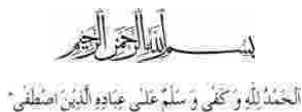 بسم الله الرحمن الرحيم
اَلْحَمْدُ لِلّٰهِ وَ كَفٰى وَ سَلٰمٌ عَلٰى عِبَادِهِ الَّذِيْنَ اصْطَفٰى